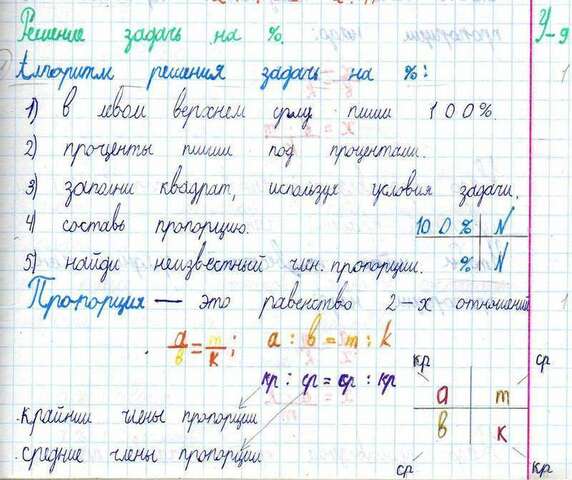 Решение задачь на %.
У-9
Алгоритм решения задачь на %:
1) в левом верхнем углу пиши 100%
2) проценты пиши под процентами.
3) заполни квадрат, используя условия задачи.
4) составь пропорцию.
100% N
5) найди неизвестный член пропорции.
% N
Пропорция — это равенство 2-х отношений
a/в = m/к; a : в = m : k
кр : ср = ср : кр
кр ср
a m
в к
ср кр
крайнии члены пропорции
средние члены пропорции